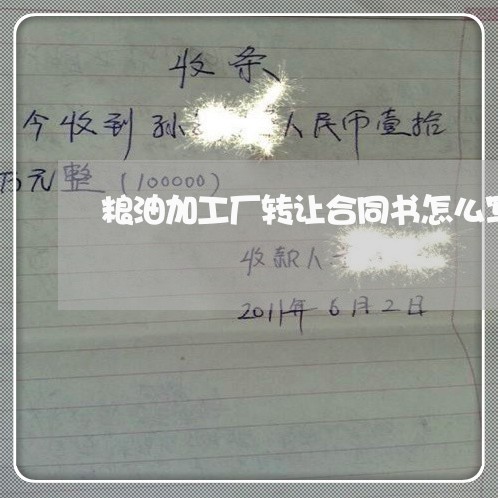 收条
今收到孙 人民币壹拾
万元整（100000）
粮油加工厂转让合同书怎么
收款人
2011年6月2日